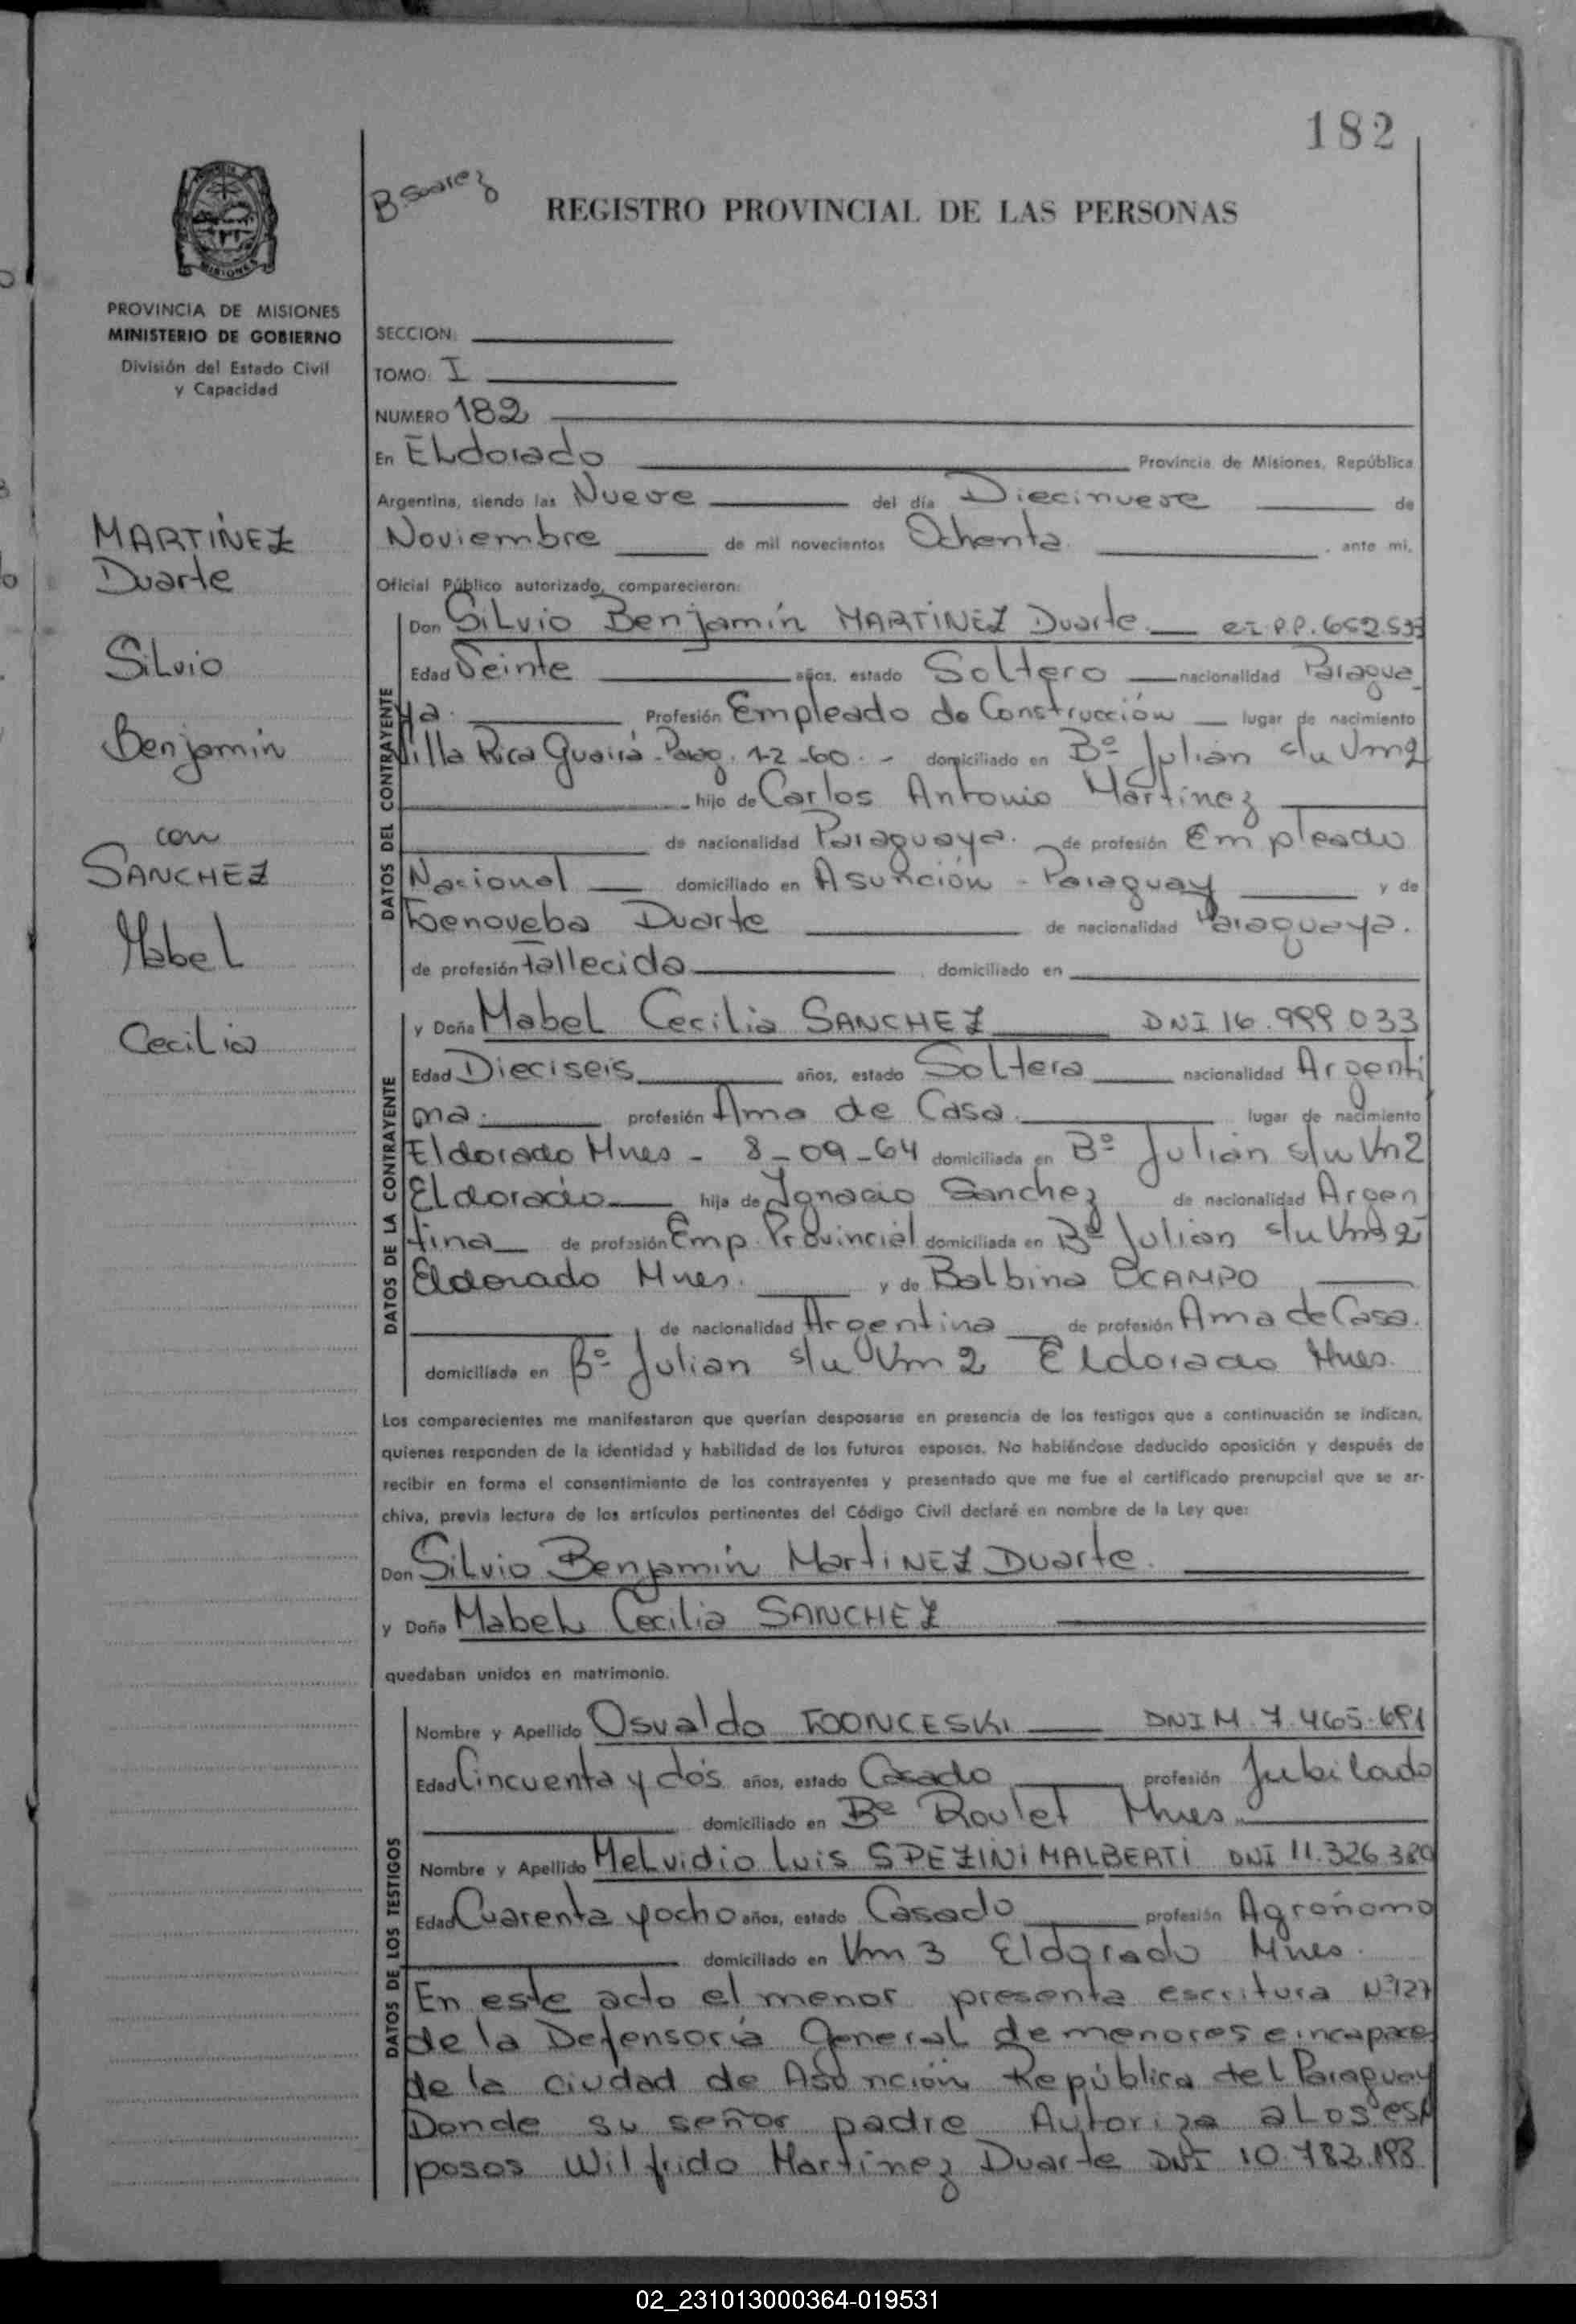 182
B. Suarez
REGISTRO PROVINCIAL DE LAS PERSONAS
MISIONES
PROVINCIA DE MISIONES
MINISTERIO DE GOBIERNO
División del Estado Civil
y Capacidad
MARTINEZ
Duarte
Silvio
Benjamin
con
SANCHEZ
Mabel
Cecilia
SECCION:
TOMO: I
NUMERO 182
En ELdorado Provincia de Misiones, República
Argentina, siendo las Nueve del día Diecinueve de
Noviembre de mil novecientos Ochenta. ante mi,
Oficial Público autorizado, comparecieron:
DATOS DEL CONTRAYENTE
Don SiLvio Benjamín MARTINEZ Duarte. C.I.P.P. 652.533
Edad Veinte años, estado Soltero nacionalidad Paragua
ya. Profesión Empleado de Construcción lugar de nacimiento
Villa Rica Guairá - Parag. 1-2-60.- domiciliado en Bº Julian s/u Km2
hijo de Carlos Antonio Martínez
de nacionalidad Paraguaya. de profesión Empleado
Nacional domiciliado en Asunción - Paraguay y de
Genoveba Duarte de nacionalidad Paraguaya.
de profesión fallecida domiciliado en
DATOS DE LA CONTRAYENTE
y Doña Mabel Cecilia SANCHEZ DNI 16.999.033
Edad Dieciseis años, estado Soltera nacionalidad Argenti
na. profesión Ama de Casa. lugar de nacimiento
Eldorado Mnes - 8-09-64 domiciliada en Bº Julian s/u Km2
Eldorado hija de Ignacio Sanchez de nacionalidad Argen
tina de profesión Emp. Provincial domiciliada en Bº Julian s/u Km 2
Eldorado Mnes. y de Balbina OCAMPO
de nacionalidad Argentina de profesión Ama de Casa.
domiciliada en Bº Julian s/u Km 2 ELdorado Mnes.
Los comparecientes me manifestaron que querían desposarse en presencia de los testigos que a continuación se indican,
quienes responden de la identidad y habilidad de los futuros esposos. No habiéndose deducido oposición y después de
recibir en forma el consentimiento de los contrayentes y presentado que me fue el certificado prenupcial que se ar-
chiva, previa lectura de los artículos pertinentes del Código Civil declaré en nombre de la Ley que:
Don Silvio Benjamin MartiNEZ Duarte.
y Doña Mabel Cecilia SANCHEZ
quedaban unidos en matrimonio.
DATOS DE LOS TESTIGOS
Nombre y Apellido Osvaldo DNI M. 7.465.691
Edad Cincuenta y dos años, estado Casado profesión Jubilado
domiciliado en Bº Roulet Mnes.
Nombre y Apellido MeLvidio Luis SPEZINI MALBERTI DNI 11.326.380
Edad Cuarenta y ocho años, estado Casado profesión Agronomo
domiciliado en Km 3 Eldorado Mnes.
En este acto el menor presenta escritura Nº 127
de la Defensoria General de menores e incapaces
de la ciudad de Asunción República del Paraguay
Donde su señor padre Autoriza a Los es
posos Wilfrido Martínez Duarte DNI 10.782.193
02_231013000364-019531